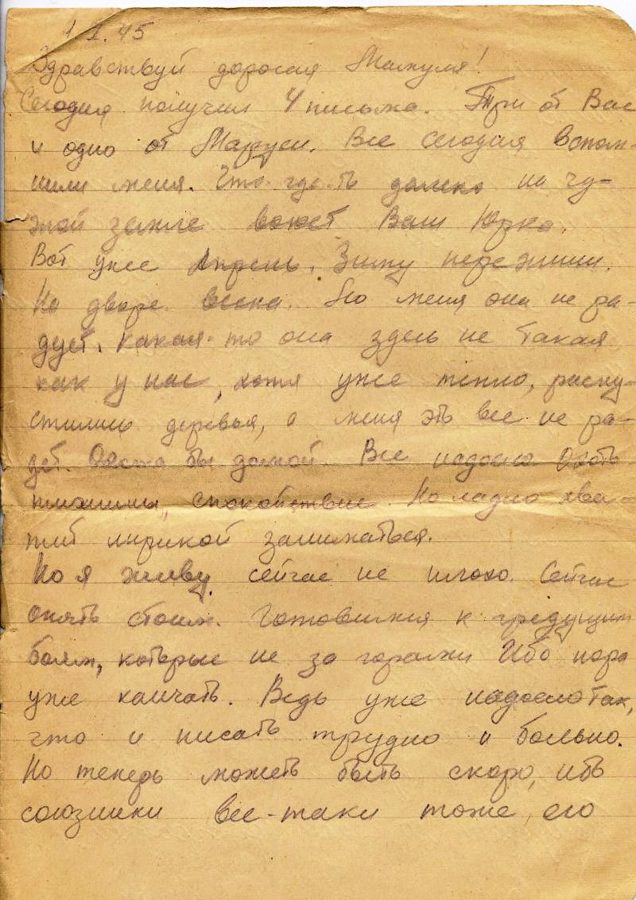 45
Здравствуй дорогая Мамуля!
Сегодня получил 4 письма. Три от Вас
и одно от Маруси. Все сегодня вспом-
нили меня. Что где-то далеко на чу-
жой земле воюет Ваш Юрка.
Вот уже Апрель. Зиму пережили.
На дворе весна. Но меня она не ра-
дует. Какая-то она здесь не такая
как у нас, хотя уже тепло, распу-
стились деревья, а меня это все не ра-
дует. Охота бы домой. Все надоело Охота
тишины, спокойствие. Но ладно хва-
тит лирикой заниматься.
Но я живу сейчас не плохо. Сейчас
опять стоим. Готовимся к грядущим
боям, которые не за горами Ибо пора
уже кончать. Ведь уже надоело так,
что и писать трудно и больно.
Но теперь может быть скоро, ибо
союзники все-таки тоже, его